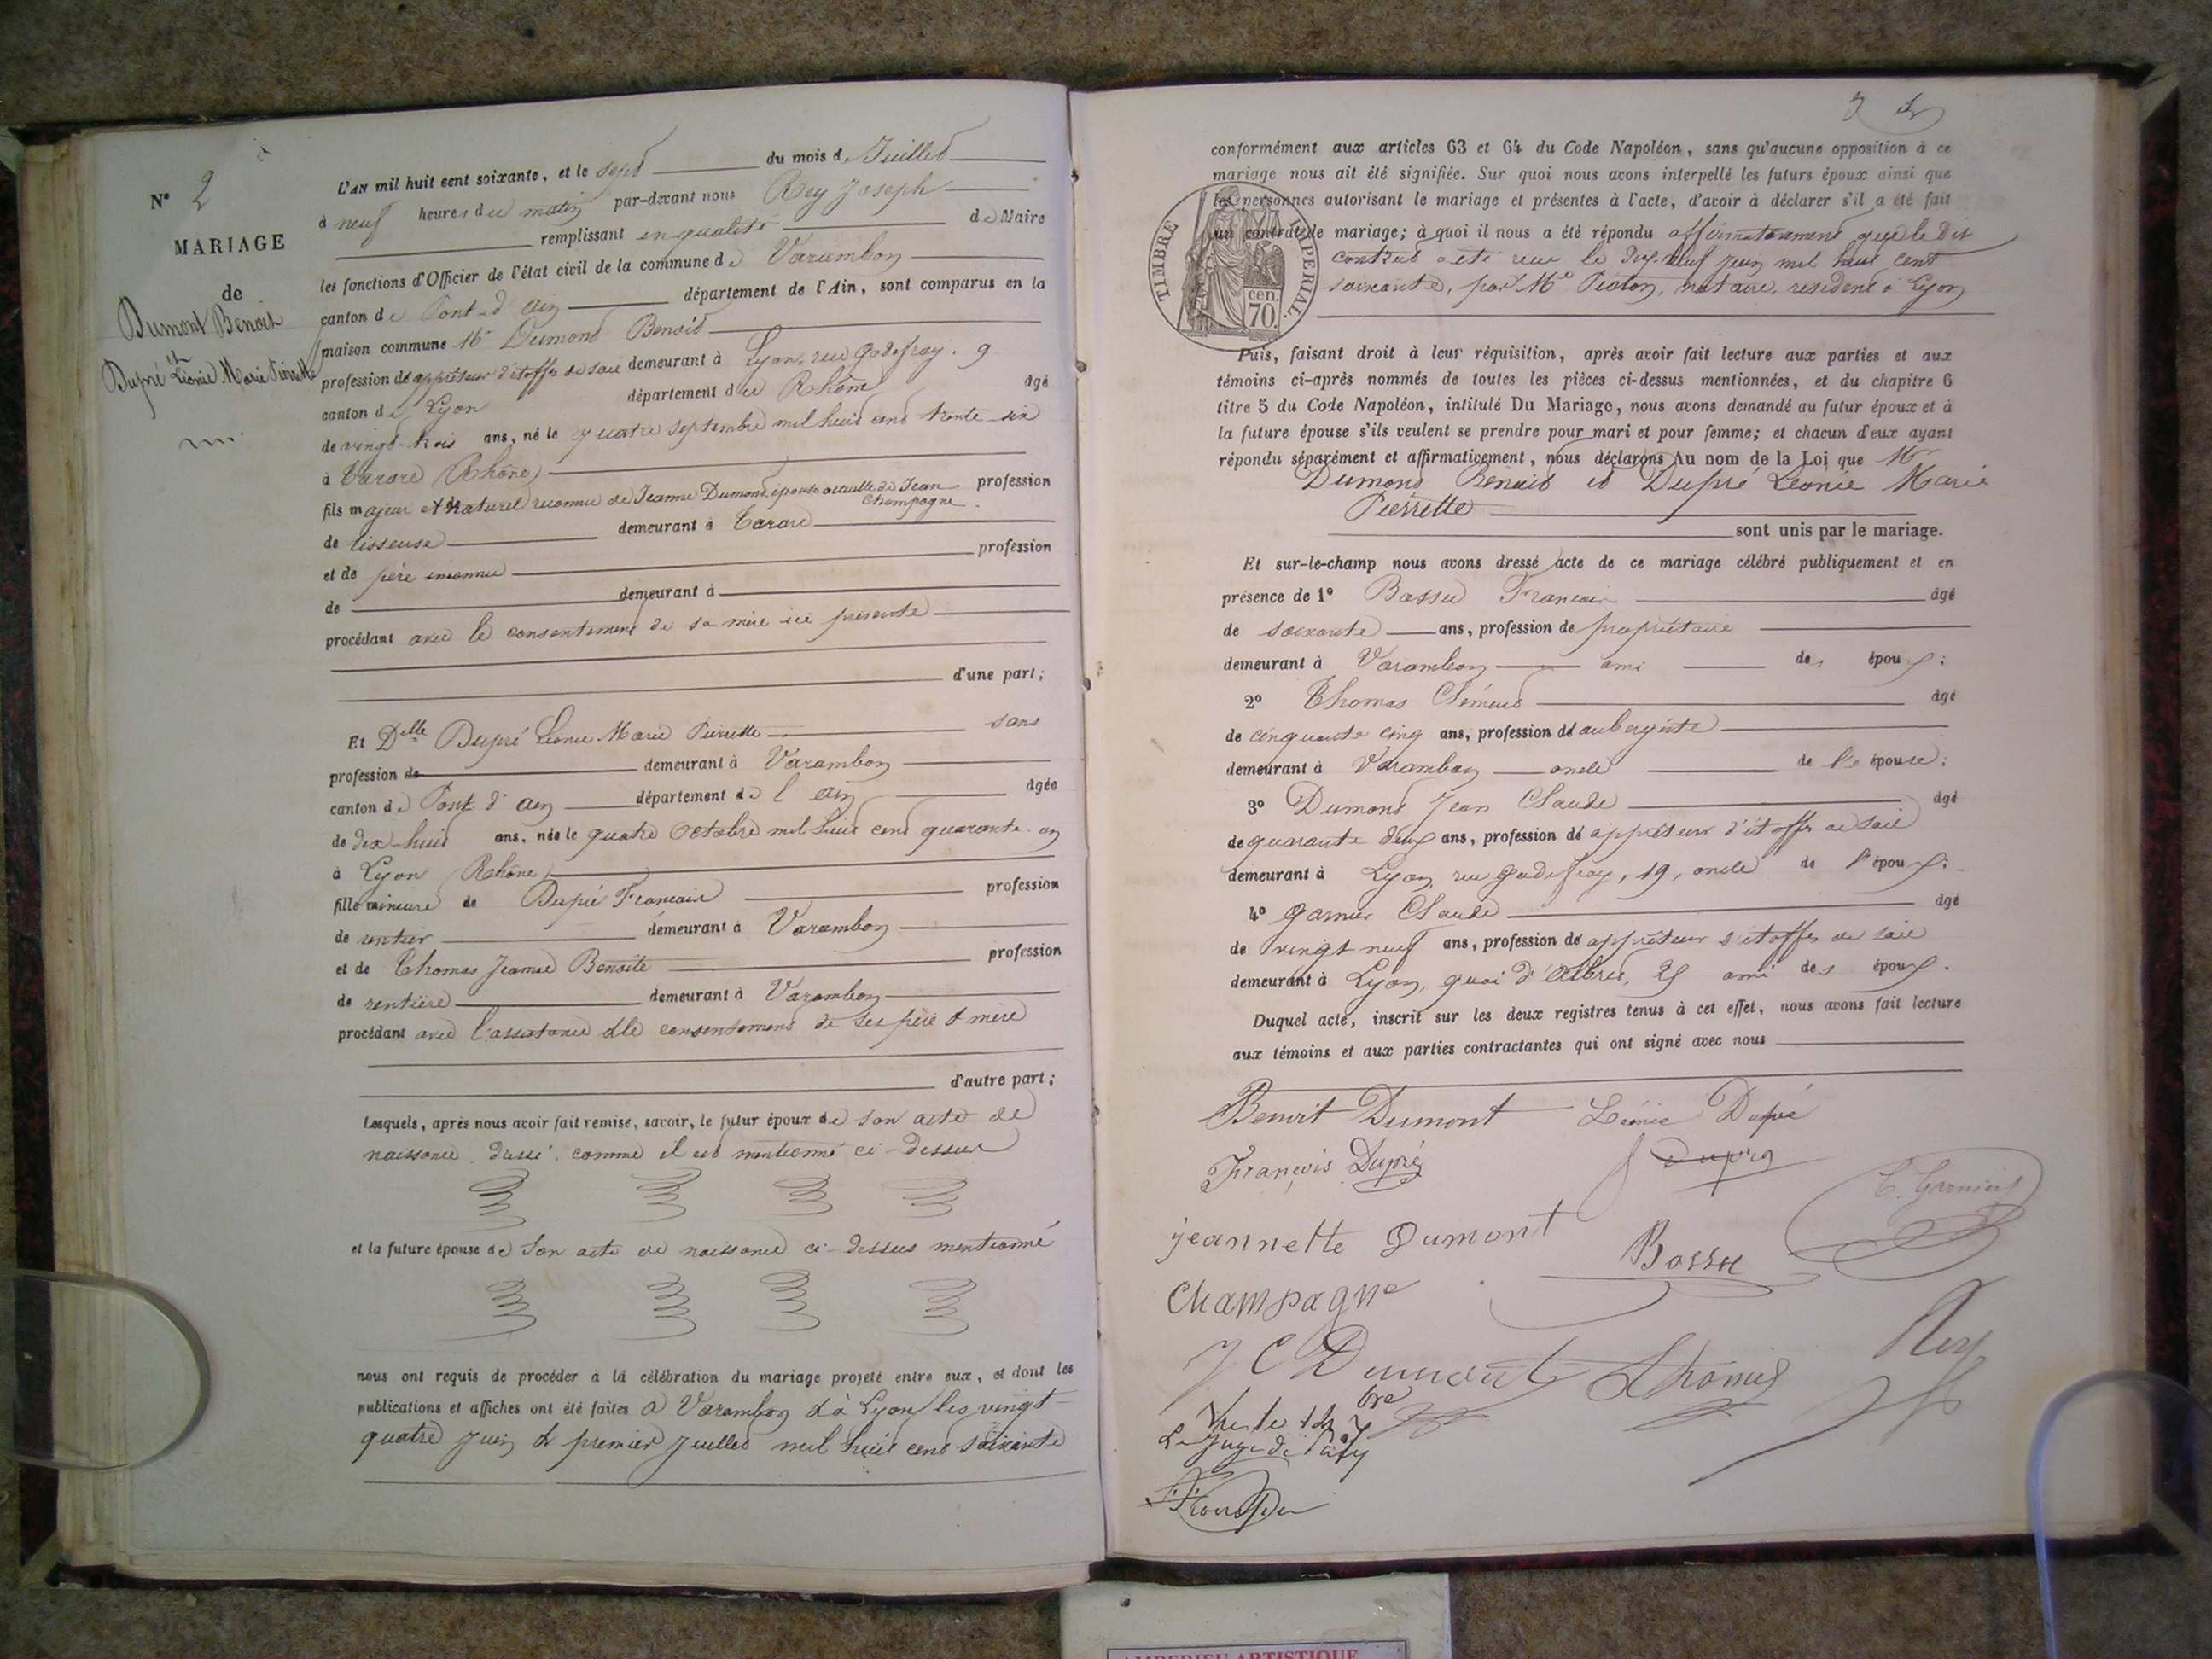 N° 2
MARIAGE
de
Dumont Benoit
et
Dupré Léonie Marie Pierrette
L'AN mil huit cent soixante, et le sept du mois de Juillet
à neuf heures du matin par-devant nous Rey Joseph
remplissant en qualité de Maire
les fonctions d'Officier de l'état civil de la commune de Varambon
canton de Pont-d'ain département de l'Ain, sont comparus en la
maison commune Mr Dumont Benoit
profession d'appréteur d'étoffe de soie demeurant à Lyon, rue Godefroy. 9
canton de Lyon département du Rhône âgé
de vingt-trois ans, né le quatre septembre mil huit cent trente-six
à Tarare (Rhône)
fils majeur et naturel reconnu de Jeanne Dumont, épouse actuelle de Jean Champagne profession
de lisseuse demeurant à Tarare
et de père inconnu profession
de demeurant à
procédant avec le consentement de sa mère ici présente
d'une part;
Et Delle Dupré Léonie Marie Pierrette sans
profession de demeurant à Varambon
canton de Pont d'ain département de l'ain âgée
de dix-huit ans, née le quatre Octobre mil huit cent quarante-un
à Lyon (Rhône)
fille mineure de Dupré Francois profession
de rentier demeurant à Varambon
et de Thomas Jeanne Benoite profession
de rentière demeurant à Varambon
procédant avec l'assistance & le consentement de ses père & mère
d'autre part;
Lesquels, après nous avoir fait remise, savoir, le futur époux de son acte de
naissance dressé, comme il est mentionné ci-dessus
et la future épouse de son acte de naissance ci-dessus mentionné
nous ont requis de procéder à la célébration du mariage projeté entre eux, et dont les
publications et affiches ont été faites à Varambon & à Lyon les vingt-
quatre Juin & premier Juillet mil huit cent soixante
conformément aux articles 63 et 64 du Code Napoléon, sans qu'aucune opposition à ce
mariage nous ait été signifiée. Sur quoi nous avons interpellé les futurs époux ainsi que
les personnes autorisant le mariage et présentes à l'acte, d'avoir à déclarer s'il a été fait
un contrat de mariage; à quoi il nous a été répondu affirmativement que le dit
contrat a été reçu le dix-neuf juin mil huit cent
soixante, par Me notaire, résident à Lyon
TIMBRE IMPERIAL.
cen.
70.
Puis, faisant droit à leur réquisition, après avoir fait lecture aux parties et aux
témoins ci-après nommés de toutes les pièces ci-dessus mentionnées, et du chapitre 6
titre 5 du Code Napoléon, intitulé Du Mariage, nous avons demandé au futur époux et à
la future épouse s'ils veulent se prendre pour mari et pour femme; et chacun d'eux ayant
répondu séparément et affirmativement, nous déclarons Au nom de la Loi que Mr
Dumont Benoit et Dupré Léonie Marie
Pierrette
sont unis par le mariage.
Et sur-le-champ nous avons dressé acte de ce mariage célébré publiquement et en
présence de 1° Bossu Francois âgé
de soixante ans, profession de propriétaire
demeurant à Varambon ami des époux;
2° Thomas Clément âgé
de cinquante cinq ans, profession d'aubergiste
demeurant à Varambon oncle de l'épouse;
3° Dumont Jean Claude âgé
de quarante deux ans, profession d'appréteur d'étoffe de soie
demeurant à Lyon, rue Godefroy, 19, oncle de l'époux;
4° Garnier Claude âgé
de vingt neuf ans, profession d'appréteur d'étoffes de soie
demeurant à Lyon, quai d'Albret, 25 ami des époux.
Duquel acte, inscrit sur les deux registres tenus à cet effet, nous avons fait lecture
aux témoins et aux parties contractantes qui ont signé avec nous
Benoit Dumont Léonie Dupré
François Dupré Dupré
C. Garnier
jeannette Dumont
Bossu
Champagne
Rey
J C Dumont Thomas
Vu le 14 7bre
Le Juge de Paix
AMBERIEU ARTISTIQUE